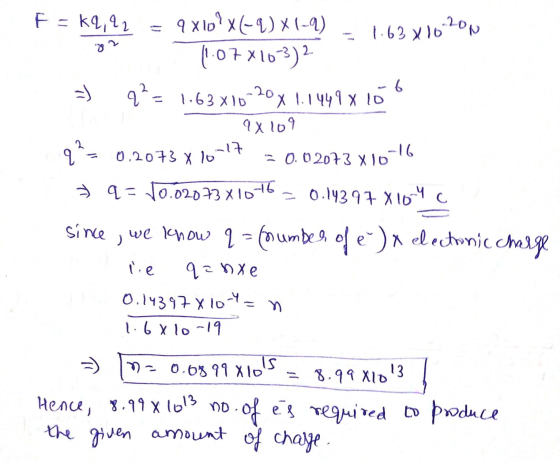 F = kq₁q₂ / r² = 9×10⁹×(-q)×(-q) / (1.07×10⁻³)² = 1.63×10⁻²⁰N
⇒ q² = 1.63×10⁻²⁰ × 1.1449×10⁻⁶ / 9×10⁹
q² = 0.2073×10⁻¹⁷ = 0.02073×10⁻¹⁶
⇒ q = √0.02073×10⁻¹⁶ = 0.14397×10⁻⁴ C
Since, we know q = (number of e⁻) × electronic charge
i.e q = n×e
0.14397×10⁻⁴ / 1.6×10-19 = n
⇒ n = 0.0899×10¹⁵ = 8.99×10¹³
Hence, 8.99×10¹³ no. of e⁻s required to produce
the given amount of charge.